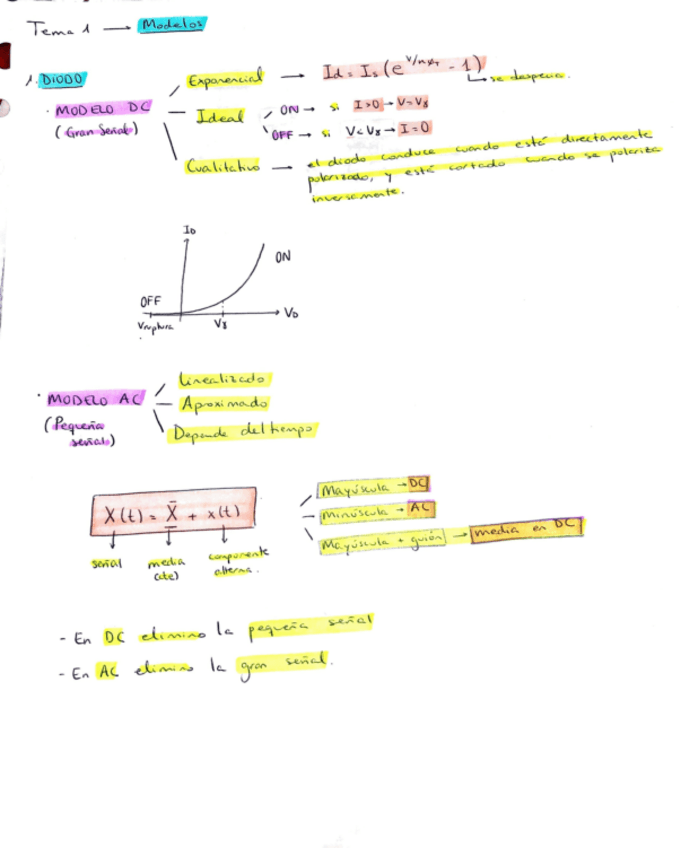 Tema 1 → Modelos
1. DIODO
· MODELO DC
(Gran Señal)
Exponencial → Id = Is (e^(V/nφT) - 1)
↳ se desprecia.
Ideal
ON → si I>0 → V=Vγ
OFF → si V<Vγ → I=0
Cualitativo → el diodo conduce cuando está directamente
polarizado, y está cortado cuando se polariza
inversamente.
ID
ON
OFF
VD
Vruptura
Vγ
· MODELO AC
(Pequeña
señal)
Linealizado
Aproximado
Depende del tiempo
X(t) = X̄ + x(t)
señal
media
(cte)
componente
alterna.
Mayúscula → DC
Minúscula → AC
Mayúscula + guión → media en DC
- En DC elimino la pequeña señal
- En AC elimino la gran señal.